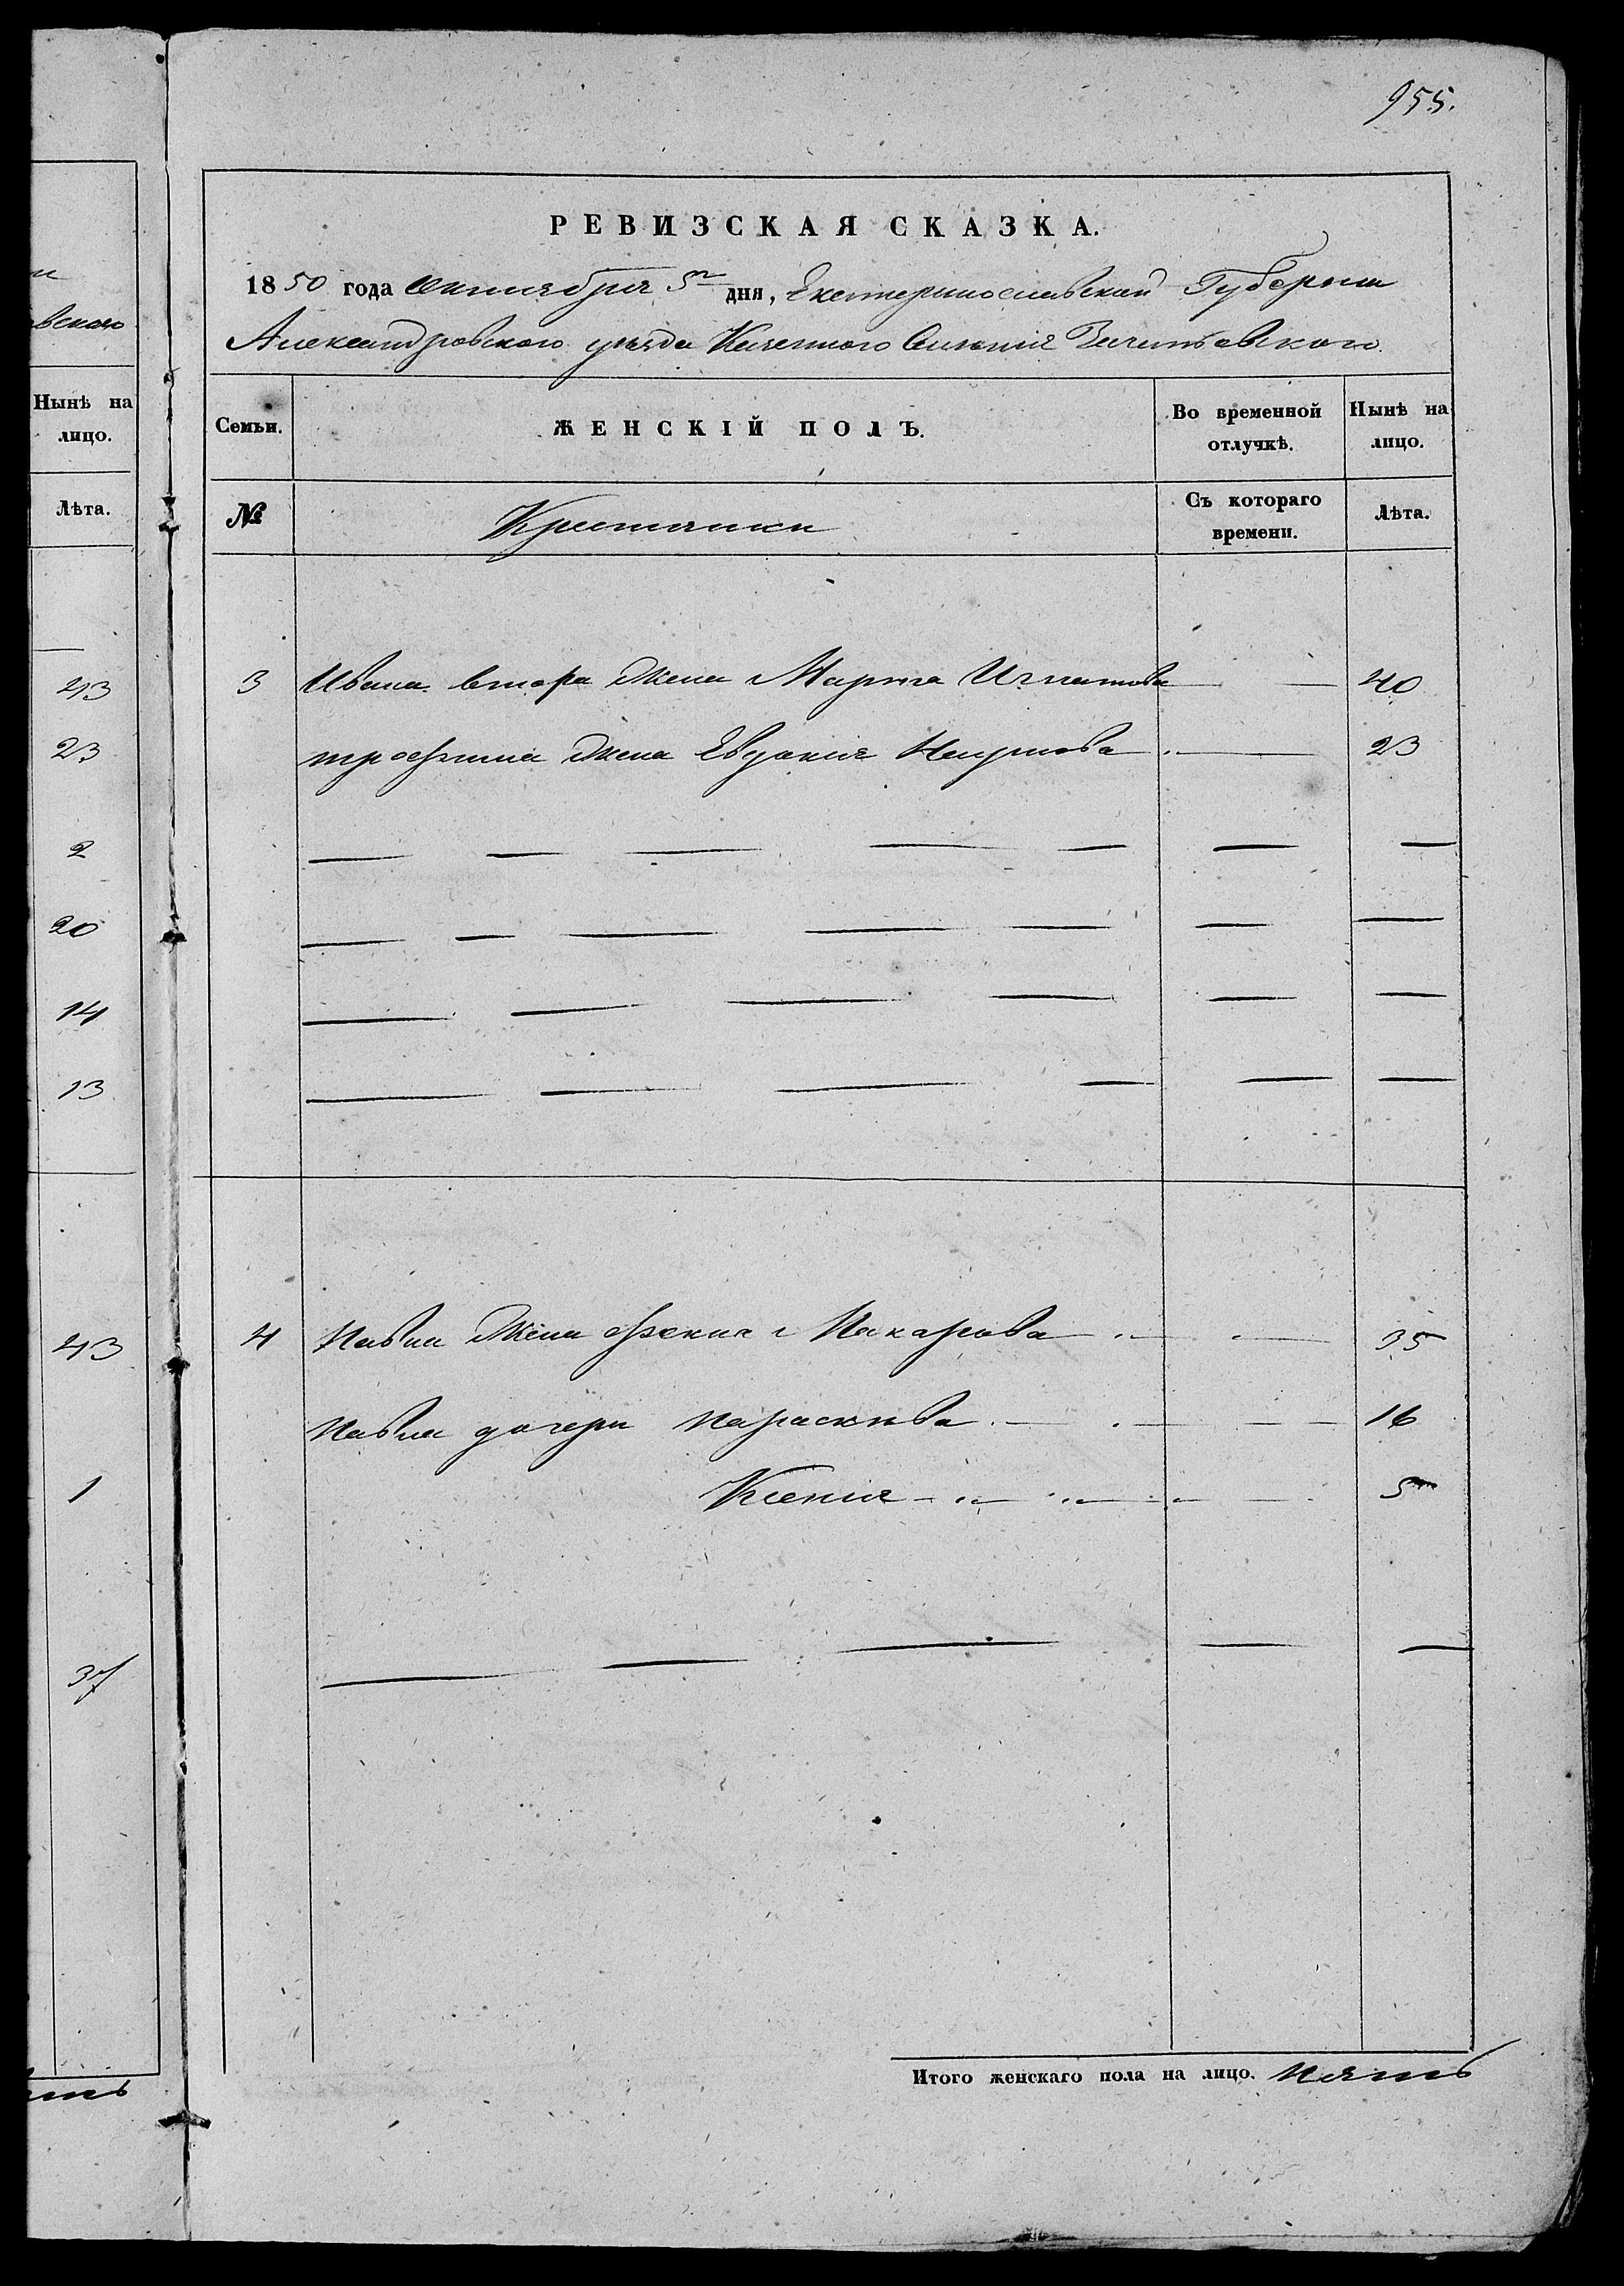 955.
РЕВИЗСКАЯ СКАЗКА.
1850 года октября 5го дня, Екатеринославской Губернии
Александровского уезда Казенного Селения
Нынѣ на лицо.
Лѣта.
Семьи.
ЖЕНСКІЙ ПОЛЪ.
Во временной отлучкѣ.
Нынѣ на лицо.
№
Съ котораго времени.
Лѣта.
43
23
2
20
14
13
43
1
37
3 Ивана втора жена Марья Игнатова 40
трофима жена Евдокия 23
4 Павла Жена фекла Макарова 35
Павла дочери Параскева 16
Ксения 5
Итого женскаго пола на лицо. Пять